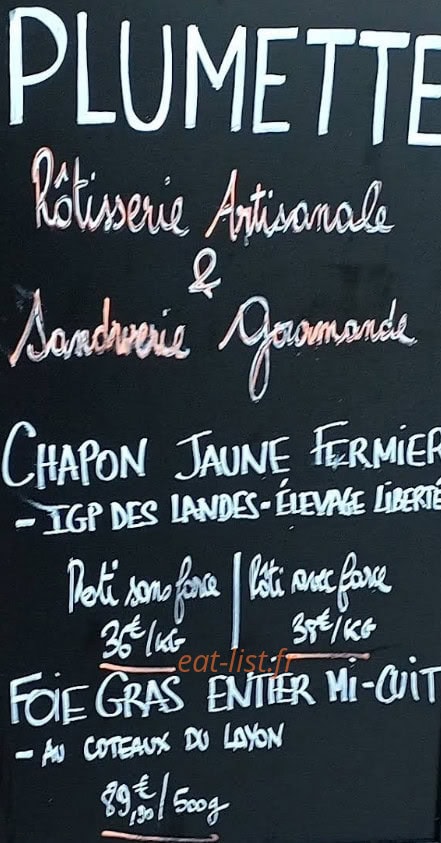 PLUMETTE
Rôtisserie Artisanale
&
Sandwerie Gourmande
CHAPON JAUNE FERMIER
- IGP DES LANDES - ÉLEVAGE LIBERTÉ
Roti sans farce | Rôti avec farce
36€/KG | 38€/KG
eat-list.fr
FOIE GRAS ENTIER MI-CUIT
- AU COTEAUX DU LAYON
89,90€/500g